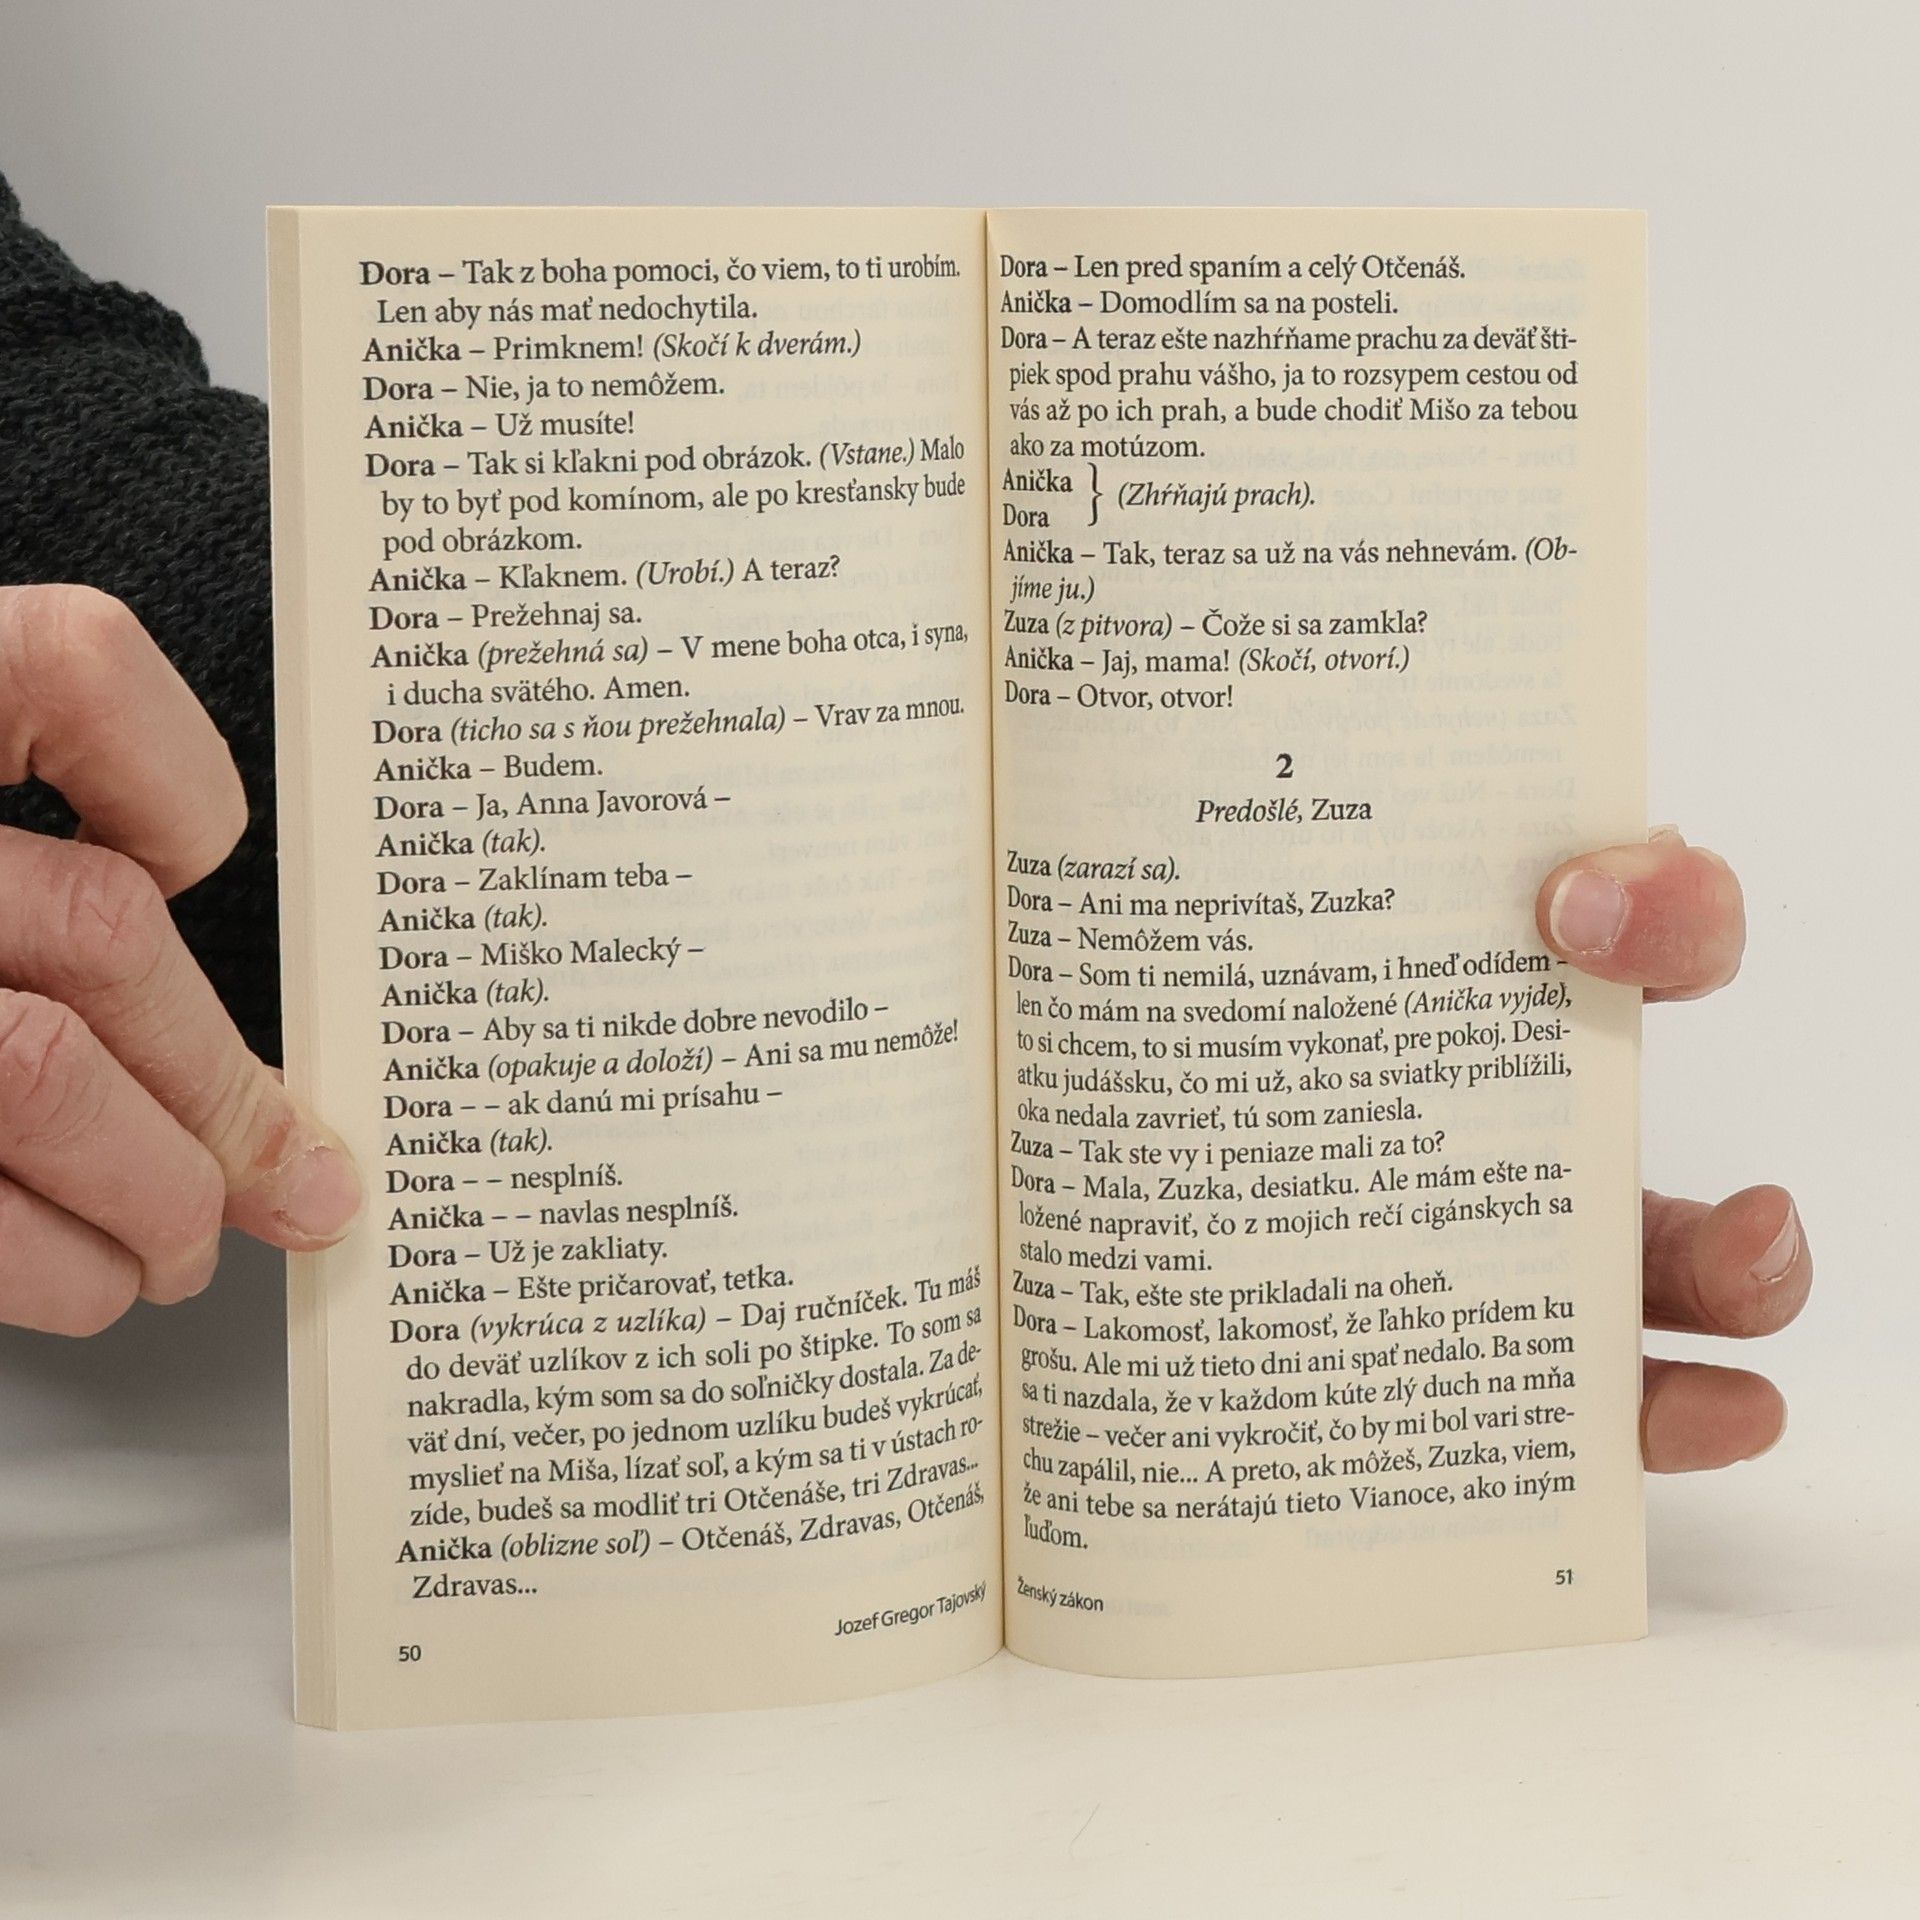 Dora – Tak z boha pomoci, čo viem, to ti urobím.
Len aby nás mať nedochytila.
Anička – Primknem! (Skočí k dverám.)
Dora – Nie, ja to nemôžem.
Anička – Už musíte!
Dora – Tak si kľakni pod obrázok. (Vstane.) Malo
by to byť pod komínom, ale po kresťansky bude
pod obrázkom.
Anička – Kľaknem. (Urobí.) A teraz?
Dora – Prežehnaj sa.
Anička (prežehná sa) – V mene boha otca, i syna,
i ducha svätého. Amen.
Dora (ticho sa s ňou prežehnala) – Vrav za mnou.
Anička – Budem.
Dora – Ja, Anna Javorová –
Anička (tak).
Dora – Zaklínam teba –
Anička (tak).
Dora – Miško Malecký –
Anička (tak).
Dora – Aby sa ti nikde dobre nevodilo –
Anička (opakuje a doloží) – Ani sa mu nemôže!
Dora – – ak danú mi prísahu –
Anička (tak).
Dora – – nesplníš.
Anička – – navlas nesplníš.
Dora – Už je zakliaty.
Anička – Ešte pričarovať, tetka.
Dora (vykrúca z uzlíka) – Daj ručníček. Tu máš
do deväť uzlíkov z ich soli po štipke. To som sa
nakradla, kým som sa do soľničky dostala. Za de-
väť dní, večer, po jednom uzlíku budeš vykrúcať,
myslieť na Miša, lízať soľ, a kým sa ti v ústach ro-
zíde, budeš sa modliť tri Otčenáše, tri Zdravas...
Anička (oblizne soľ) – Otčenáš, Zdravas, Otčenáš,
Zdravas...
Jozef Gregor Tajovský
50
Dora – Len pred spaním a celý Otčenáš.
Anička – Domodlím sa na posteli.
Dora – A teraz ešte nazhŕňame prachu za deväť šti-
piek spod prahu vášho, ja to rozsypem cestou od
vás až po ich prah, a bude chodiť Mišo za tebou
ako za motúzom.
Anička
Dora } (Zhŕňajú prach).
Anička – Tak, teraz sa už na vás nehnevám. (Ob-
jíme ju.)
Zuza (z pitvora) – Čože si sa zamkla?
Anička – Jaj, mama! (Skočí, otvorí.)
Dora – Otvor, otvor!
2
Predošlé, Zuza
Zuza (zarazí sa).
Dora – Ani ma neprivítaš, Zuzka?
Zuza – Nemôžem vás.
Dora – Som ti nemilá, uznávam, i hneď odídem –
len čo mám na svedomí naložené (Anička vyjde),
to si chcem, to si musím vykonať, pre pokoj. Desi-
atku judášsku, čo mi už, ako sa sviatky priblížili,
oka nedala zavrieť, tú som zaniesla.
Zuza – Tak ste vy i peniaze mali za to?
Dora – Mala, Zuzka, desiatku. Ale mám ešte na-
ložené napraviť, čo z mojich rečí cigánskych sa
stalo medzi vami.
Zuza – Tak, ešte ste prikladali na oheň.
Dora – Lakomosť, lakomosť, že ľahko prídem ku
grošu. Ale mi už tieto dni ani spať nedalo. Ba som
sa ti nazdala, že v každom kúte zlý duch na mňa
strežie – večer ani vykročiť, čo by mi bol vari stre-
chu zapálil, nie... A preto, ak môžeš, Zuzka, viem,
že ani tebe sa nerátajú tieto Vianoce, ako iným
ľuďom.
Ženský zákon
51